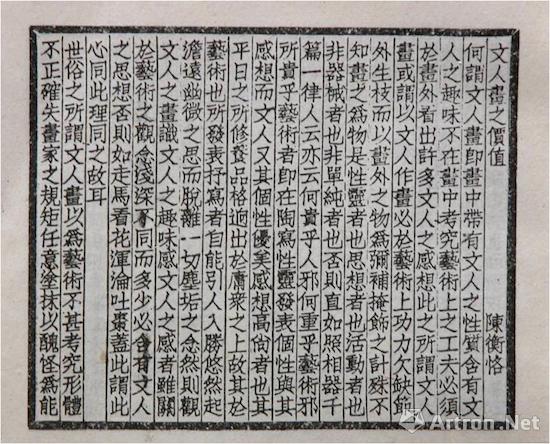 文人畫之價值 陳衡恪
何謂文人畫即畫中帶有文人之性質含有文
人之趣味不在畫中考究藝術上之工夫必須
於畫外看出許多文人之感想此之所謂文人
畫或謂以文人作畫必於藝術上功力欠缺節
外生枝而以畫外之物爲彌補掩飾之計殊不
知畫之爲物是性靈者也思想者也活動者也
非器械者也非單純者也否則直如照相器千
篇一律人云亦云何貴乎人邪何重乎藝術邪
所貴乎藝術者即在陶寫性靈發表個性與其
感想而文人又其個性優美感想高尚者也其
平日之所修養品格迥出於庸衆之上故其於
藝術也所發表抒寫者自能引人入勝悠然起
澹遠幽微之思而脫離一切塵垢之念然則觀
文人之畫識文人之趣味感文人之感者雖關
於藝術之觀念淺深不同而多少必含有文人
之思想否則如走馬看花渾淪吐棗蓋此謂此
心同此理同之故耳
世俗之所謂文人畫以爲藝術不甚考究形體
不正確失畫家之規矩任意塗抹以醜怪爲能
Artron.Net